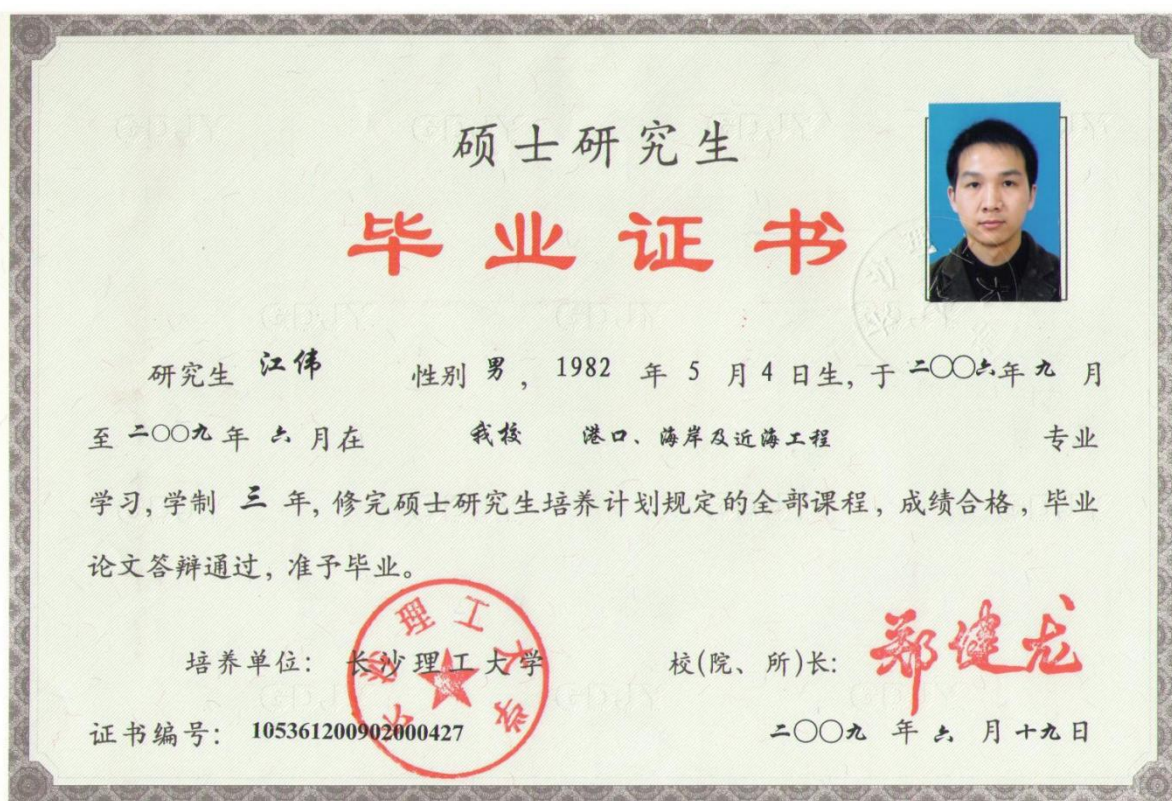 硕士研究生
毕业证书
研究生 江伟 性别 男，1982 年 5 月 4 日生，于 二〇〇六年 九 月
至 二〇〇九 年 六 月在 我校 港口、海岸及近海工程 专业
学习，学制 三 年，修完硕士研究生培养计划规定的全部课程，成绩合格，毕业
论文答辩通过，准予毕业。
长沙理工大学
培养单位：长沙理工大学 校(院、所)长：郑健龙
证书编号：105361200902000427 二〇〇九 年 六 月 十九 日